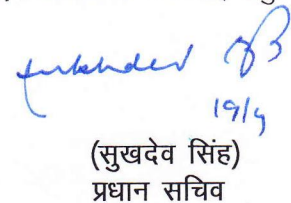 19/9
(सुखदेव सिंह)
प्रधान सचिव